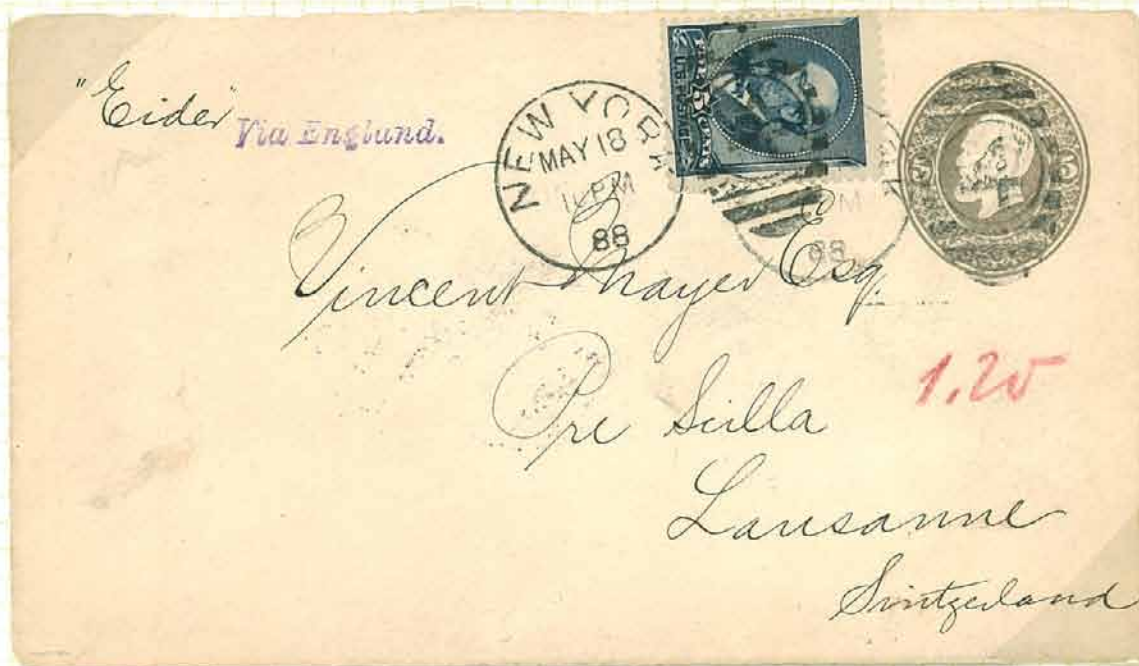 "Eider"
Via England.
NEW YORK
MAY 18
88
U.S. POSTAGE
5
88
Vincent Mayer Esq.
1.20
Pre Scilla
Lausanne
Switzerland